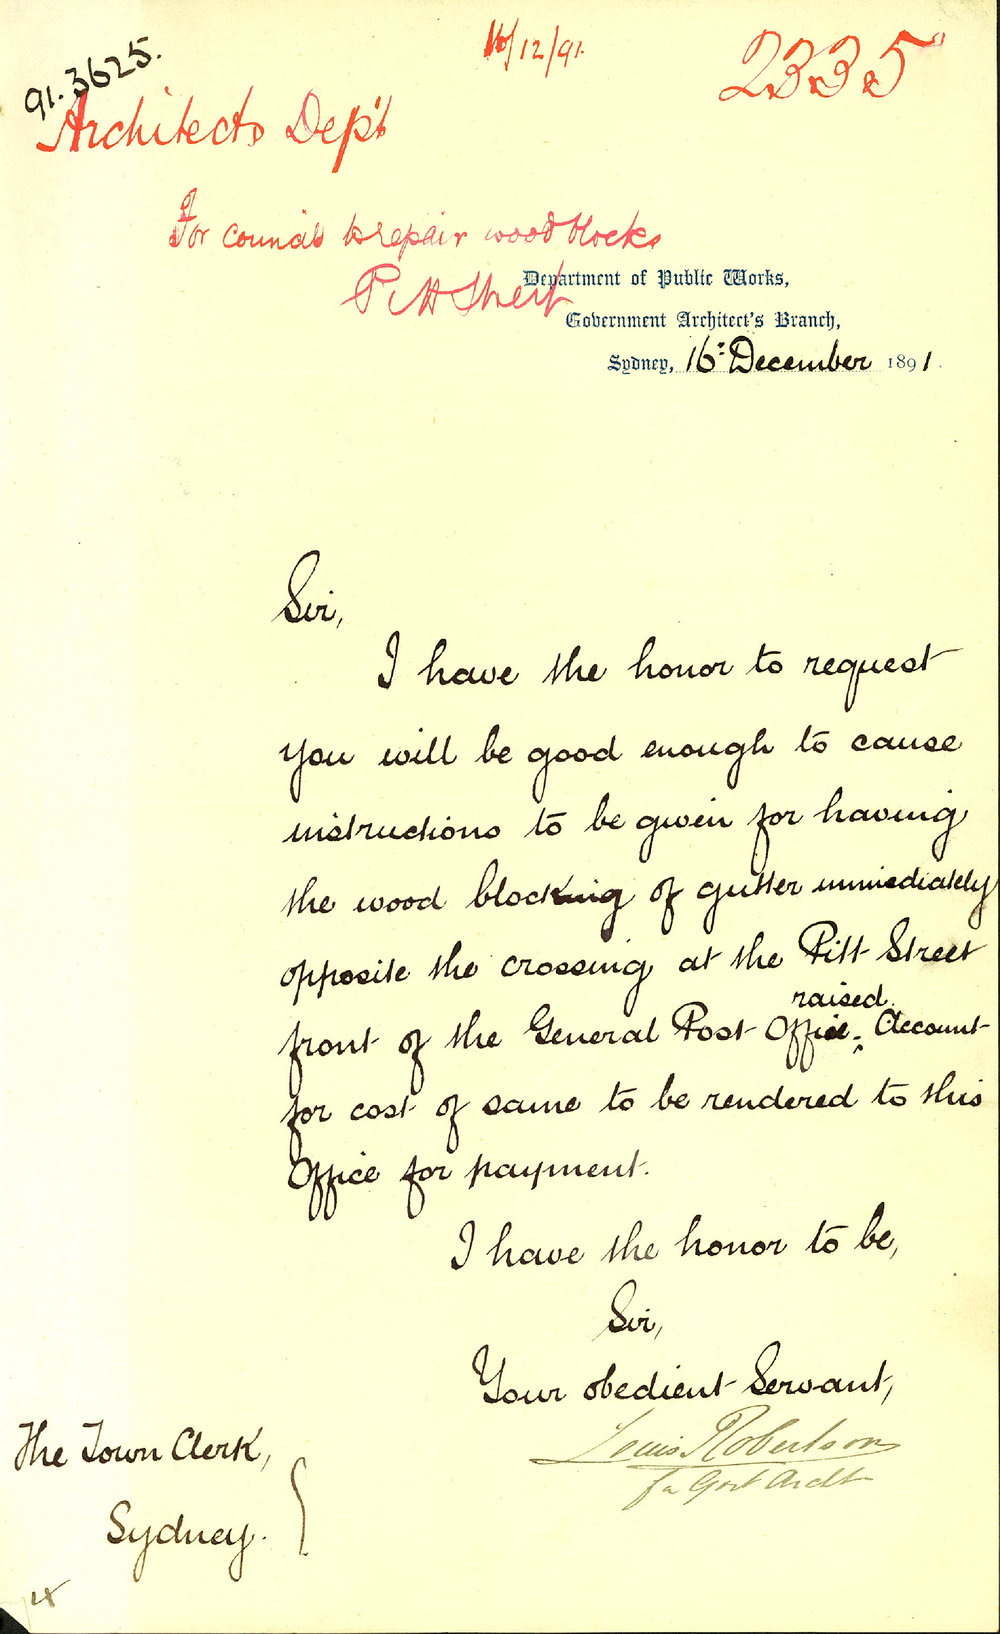 91.3625.
16/12/91.
2335
Architects Dep't
For council to repair wood blocks
Pitt Street
Department of Public Works,
Government Architect's Branch,
Sydney, 16: December 1891.
Sir,
I have the honor to request
you will be good enough to cause
instructions to be given for having
the wood blocking of gutter immediately
opposite the crossing at the Pitt Street
raised.
front of the General Post Office. ^ Account
for cost of same to be rendered to this
Office for payment.
I have the honor to be,
Sir,
Your obedient Servant,
Louis Robertson
for Govt Archt
The Town Clerk,
Sydney.